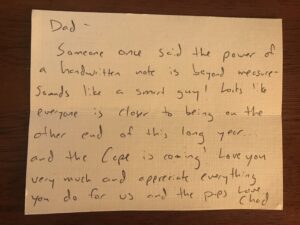 Dad -
Someone once said the power of
a handwritten note is beyond measure-
Sounds like a smart guy! Looks like
everyone is closer to being on the
other end of this long year...
and the Cape is coming! Love you
very much and appreciate everything
you do for us and the pups Love
Chad